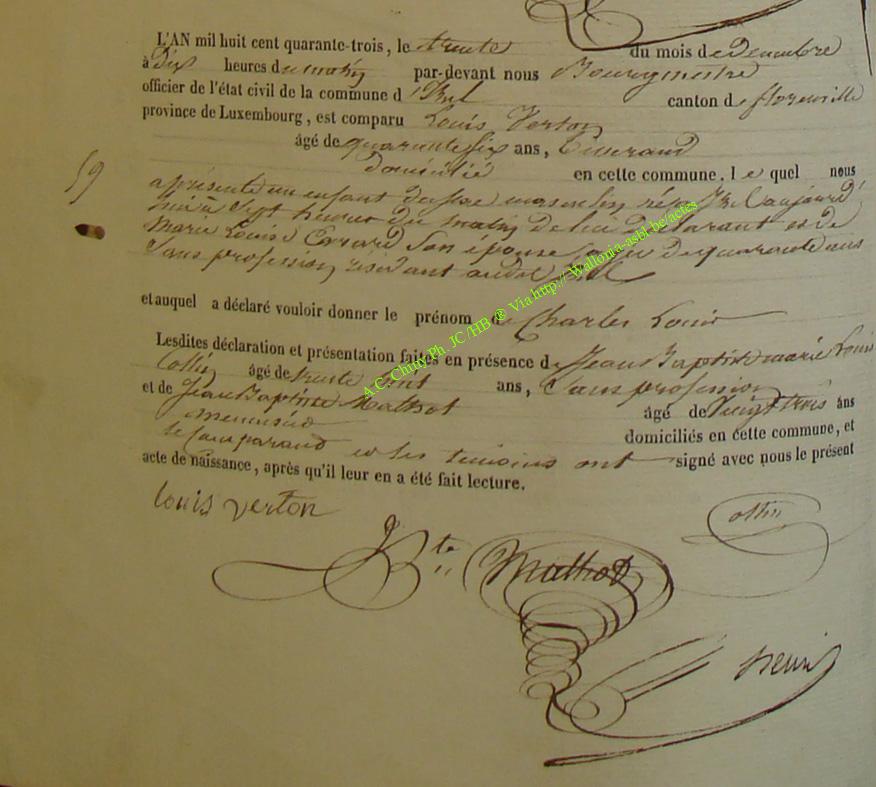 L'AN mil huit cent quarante-trois, le trente du mois de Decembre
à Dix heures du matin par-devant nous Bourgmestre
officier de l'état civil de la commune d'Izel canton de florenville
province de Luxembourg, est comparu Louis Verton
âgé de quarante six ans, Tisserand
domicilié en cette commune, le quel nous
59
a présenté un enfant du sexe masculin né à Izel aujourd'
hui à Sept heures du matin de lui Declarant et de
Marie Louise Evrard Son épouse agée de quarante ans
Sans profession, résidant audit Izel
et auquel a déclaré vouloir donner le prénom de Charles Louis
Lesdites déclaration et présentation faites en présence de Jean Baptiste marie Louis
Collin âgé de trente ans, Sans profession
et de Jean Baptiste Mathot âgé de Vingt trois ans
menuisier domiciliés en cette commune, et
le Comparant et les temoins ont signé avec nous le présent
acte de naissance, après qu'il leur en a été fait lecture.
louis verton
Collin
J Bte Mathot
henri
A.C. Chiny Ph. JC /HB @ Via http:// Wallonia-asbl.be/actes